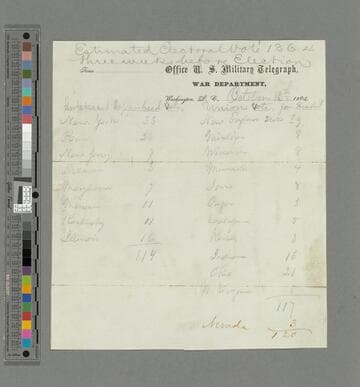 Estimated Electoral Vote 1864
Three weeks before Election
Time
Office U. S. Military Telegraph,
WAR DEPARTMENT,
Washington, D. C., October 13th 1864
Supposed Copperhead Vote
Union Vote, for
New York 33
New England States 39
Penn 26
Michigan 8
New Jersey 7
Wisconsin 8
Delaware 3
Minnesota 4
Maryland 7
Iowa 8
Missouri 11
Oregon 3
Kentucky 11
California 5
Illinois 16
Kansas 3
114
Indiana 13
Ohio 21
W. Virginia 5
117
Nevada 3
120